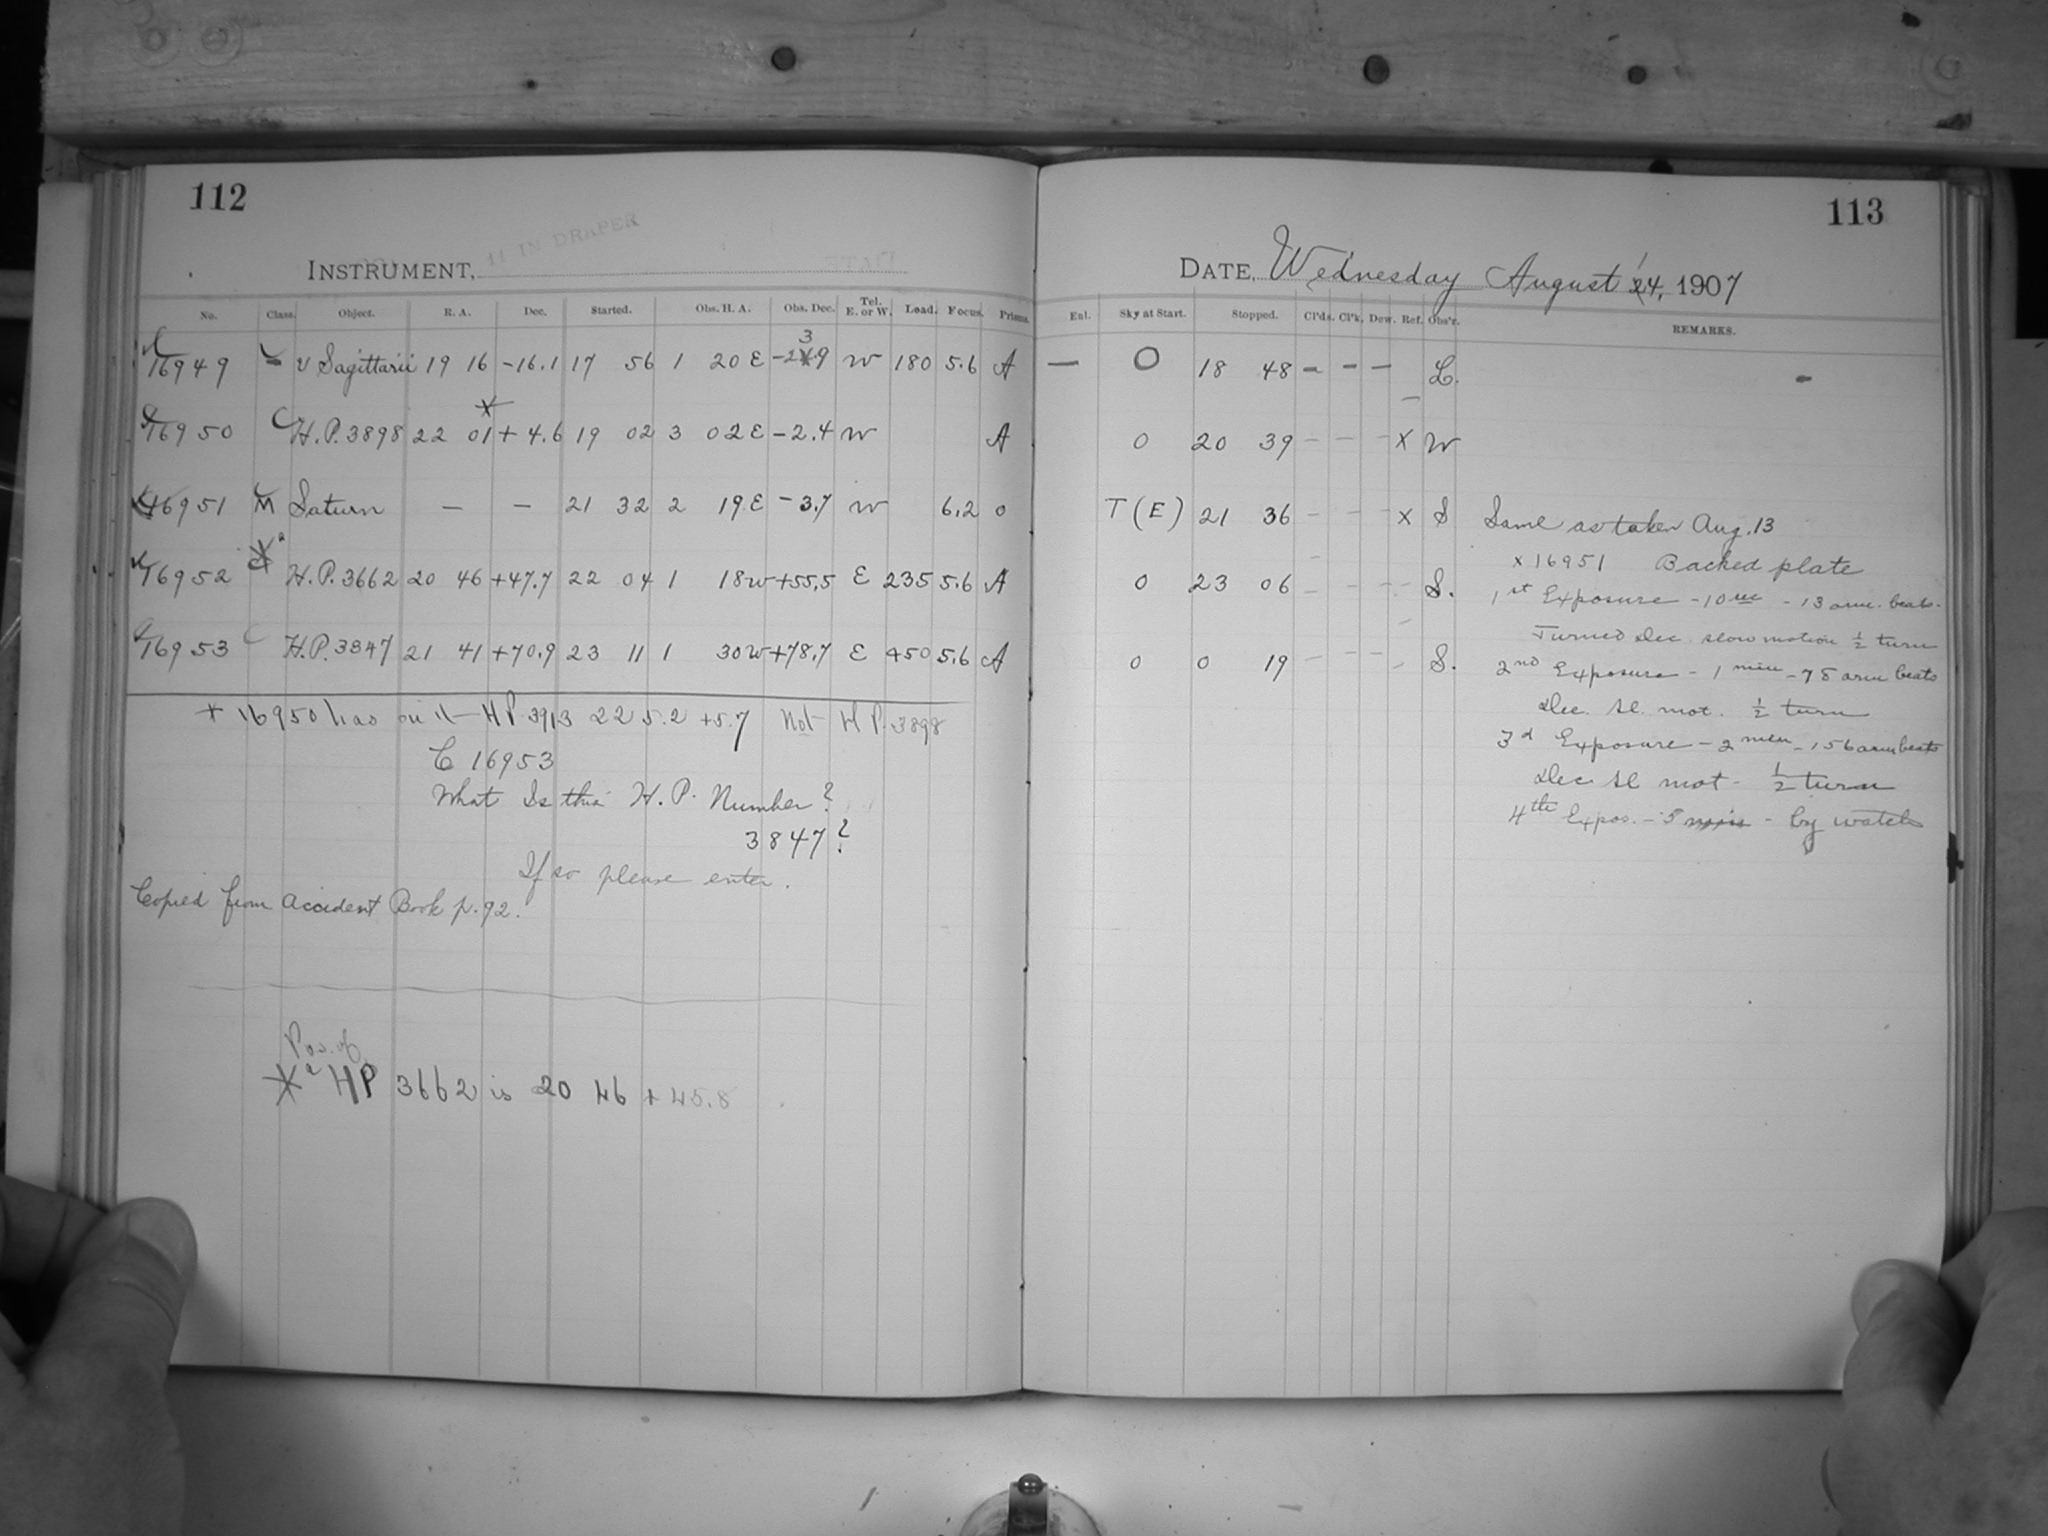 112
11 IN DRAPER
INSTRUMENT,
No. Class. Object. R. A. Dec. Started. Obs. H. A. Obs. Dec. Tel. E. or W. Load. Focus. Prisms.
3
16949 υ Sagittarii 19 16 -16.1 17 56 1 20 E W 180 5.6 A
16950 C H.P. 3898 22 01 + 4.6 19 02 3 02 E -2.4 W A
16951 M Saturn — — 21 32 2 19 E -3.7 W 6.2 0
16952 C H.P. 3662 20 46 +47.7 22 04 1 18 W +55.5 E 235 5.6 A
16953 C H.P. 3847 21 41 +70.9 23 11 1 30 W +78.7 E 450 5.6 A
+ 16950 has on it HP 3913 22 5.2 +5.7 Not H P. 3898
C 16953
What Is this H. P. Number?
3847?
If so please enter.
Copied from Accident Book p. 92.
Pos. of
HP 3662 is 20 46 + 45.8
113
DATE, Wednesday August 14, 1907
Enl. Sky at Start. Stopped. Cl'ds. Cl'k. Dew. Ref. Obs'r. REMARKS.
— 0 18 48 – – – – L.
0 20 39 – – – X W
T (E) 21 36 – – – X S Same as taken Aug. 13
x 16951 Backed plate
0 23 06 – – – – S. 1st Exposure – 10 sec – 13 arm. beats.
Turned Dec. slow motion ½ turn
0 0 19 – – – – S. 2nd Exposure – 1 min – 78 arm beats
Dec. sl. mot. ½ turn
3d Exposure – 2 min – 156 arm beats
Dec sl mot – ½ turn
4th Expos. – 5 min – by watch